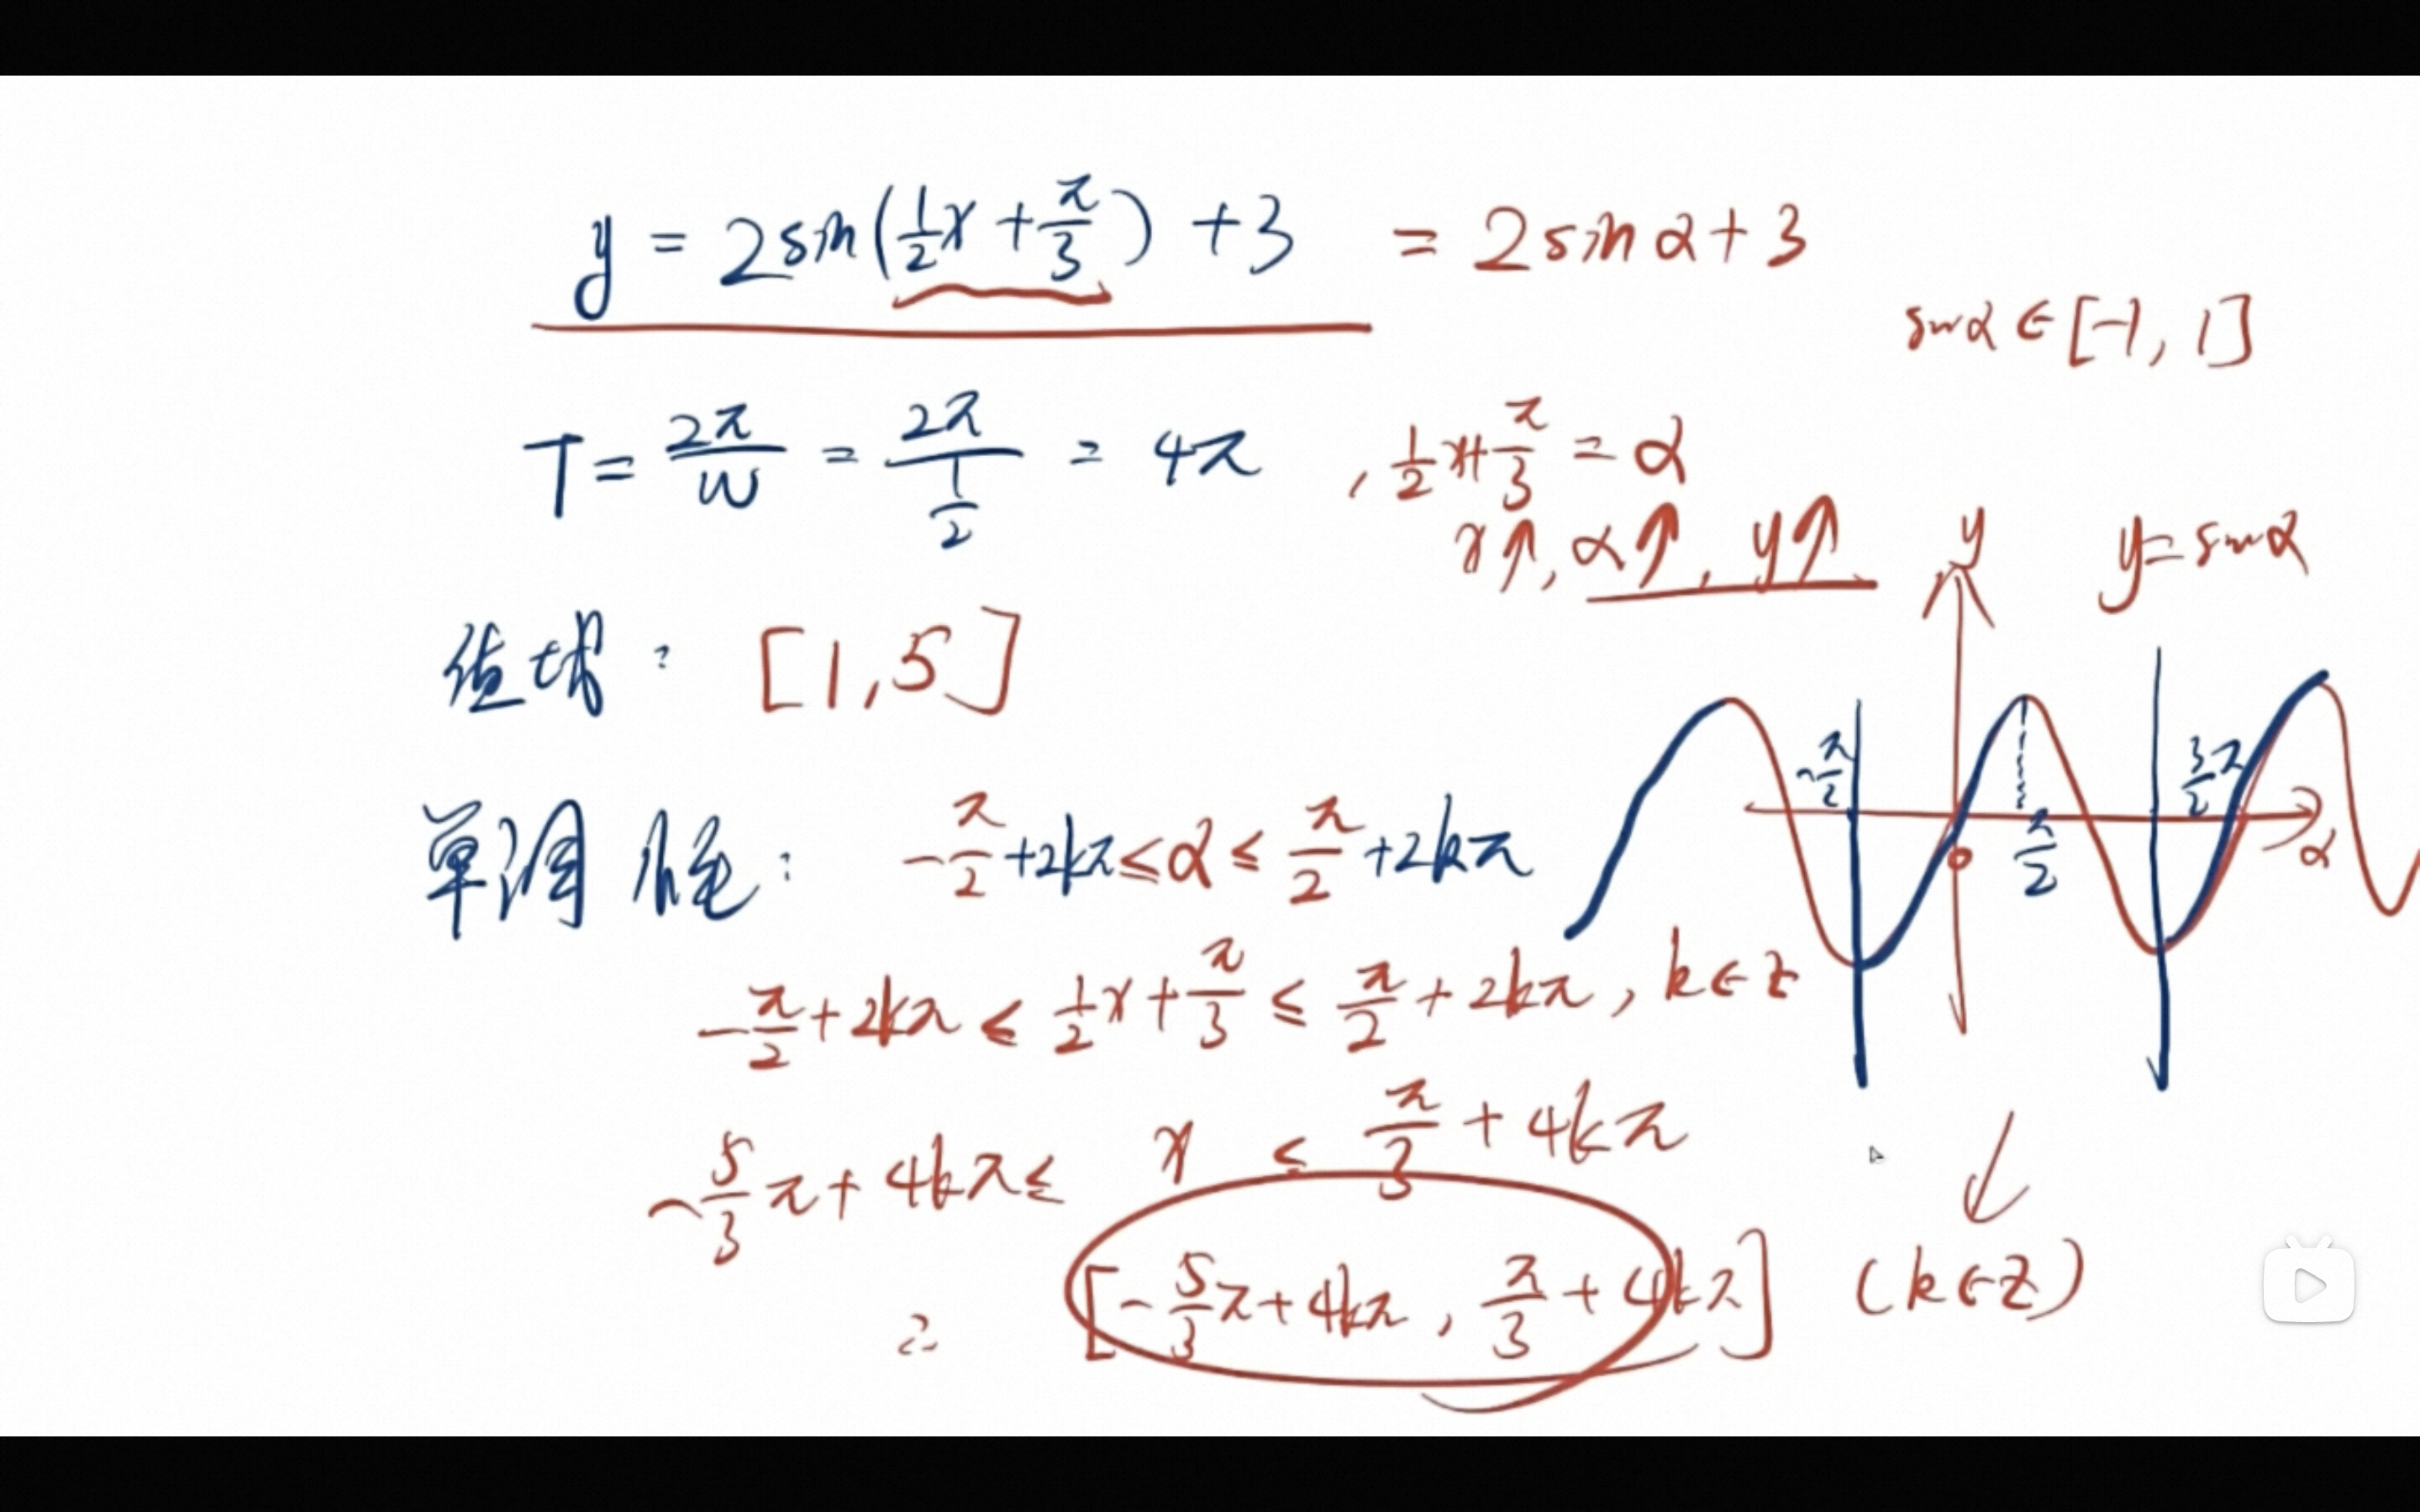 y = 2sin(1/2 x + π/3) + 3 = 2 sin α + 3
sin α ∈ [-1, 1]
T = 2π/w = 2π/(1/2) = 4π , 1/2 x + π/3 = α
x↑, α↑, y↑
y
y = sin α
值域: [1, 5]
-π/2
3/2 π
π/2
0
α
单调性: -π/2 + 2kπ ≤ α ≤ π/2 + 2kπ
-π/2 + 2kπ ≤ 1/2 x + π/3 ≤ π/2 + 2kπ, k∈z
-5/3 π + 4kπ ≤ x ≤ π/3 + 4kπ
[-5/3 π + 4kπ, π/3 + 4kπ] (k∈z)